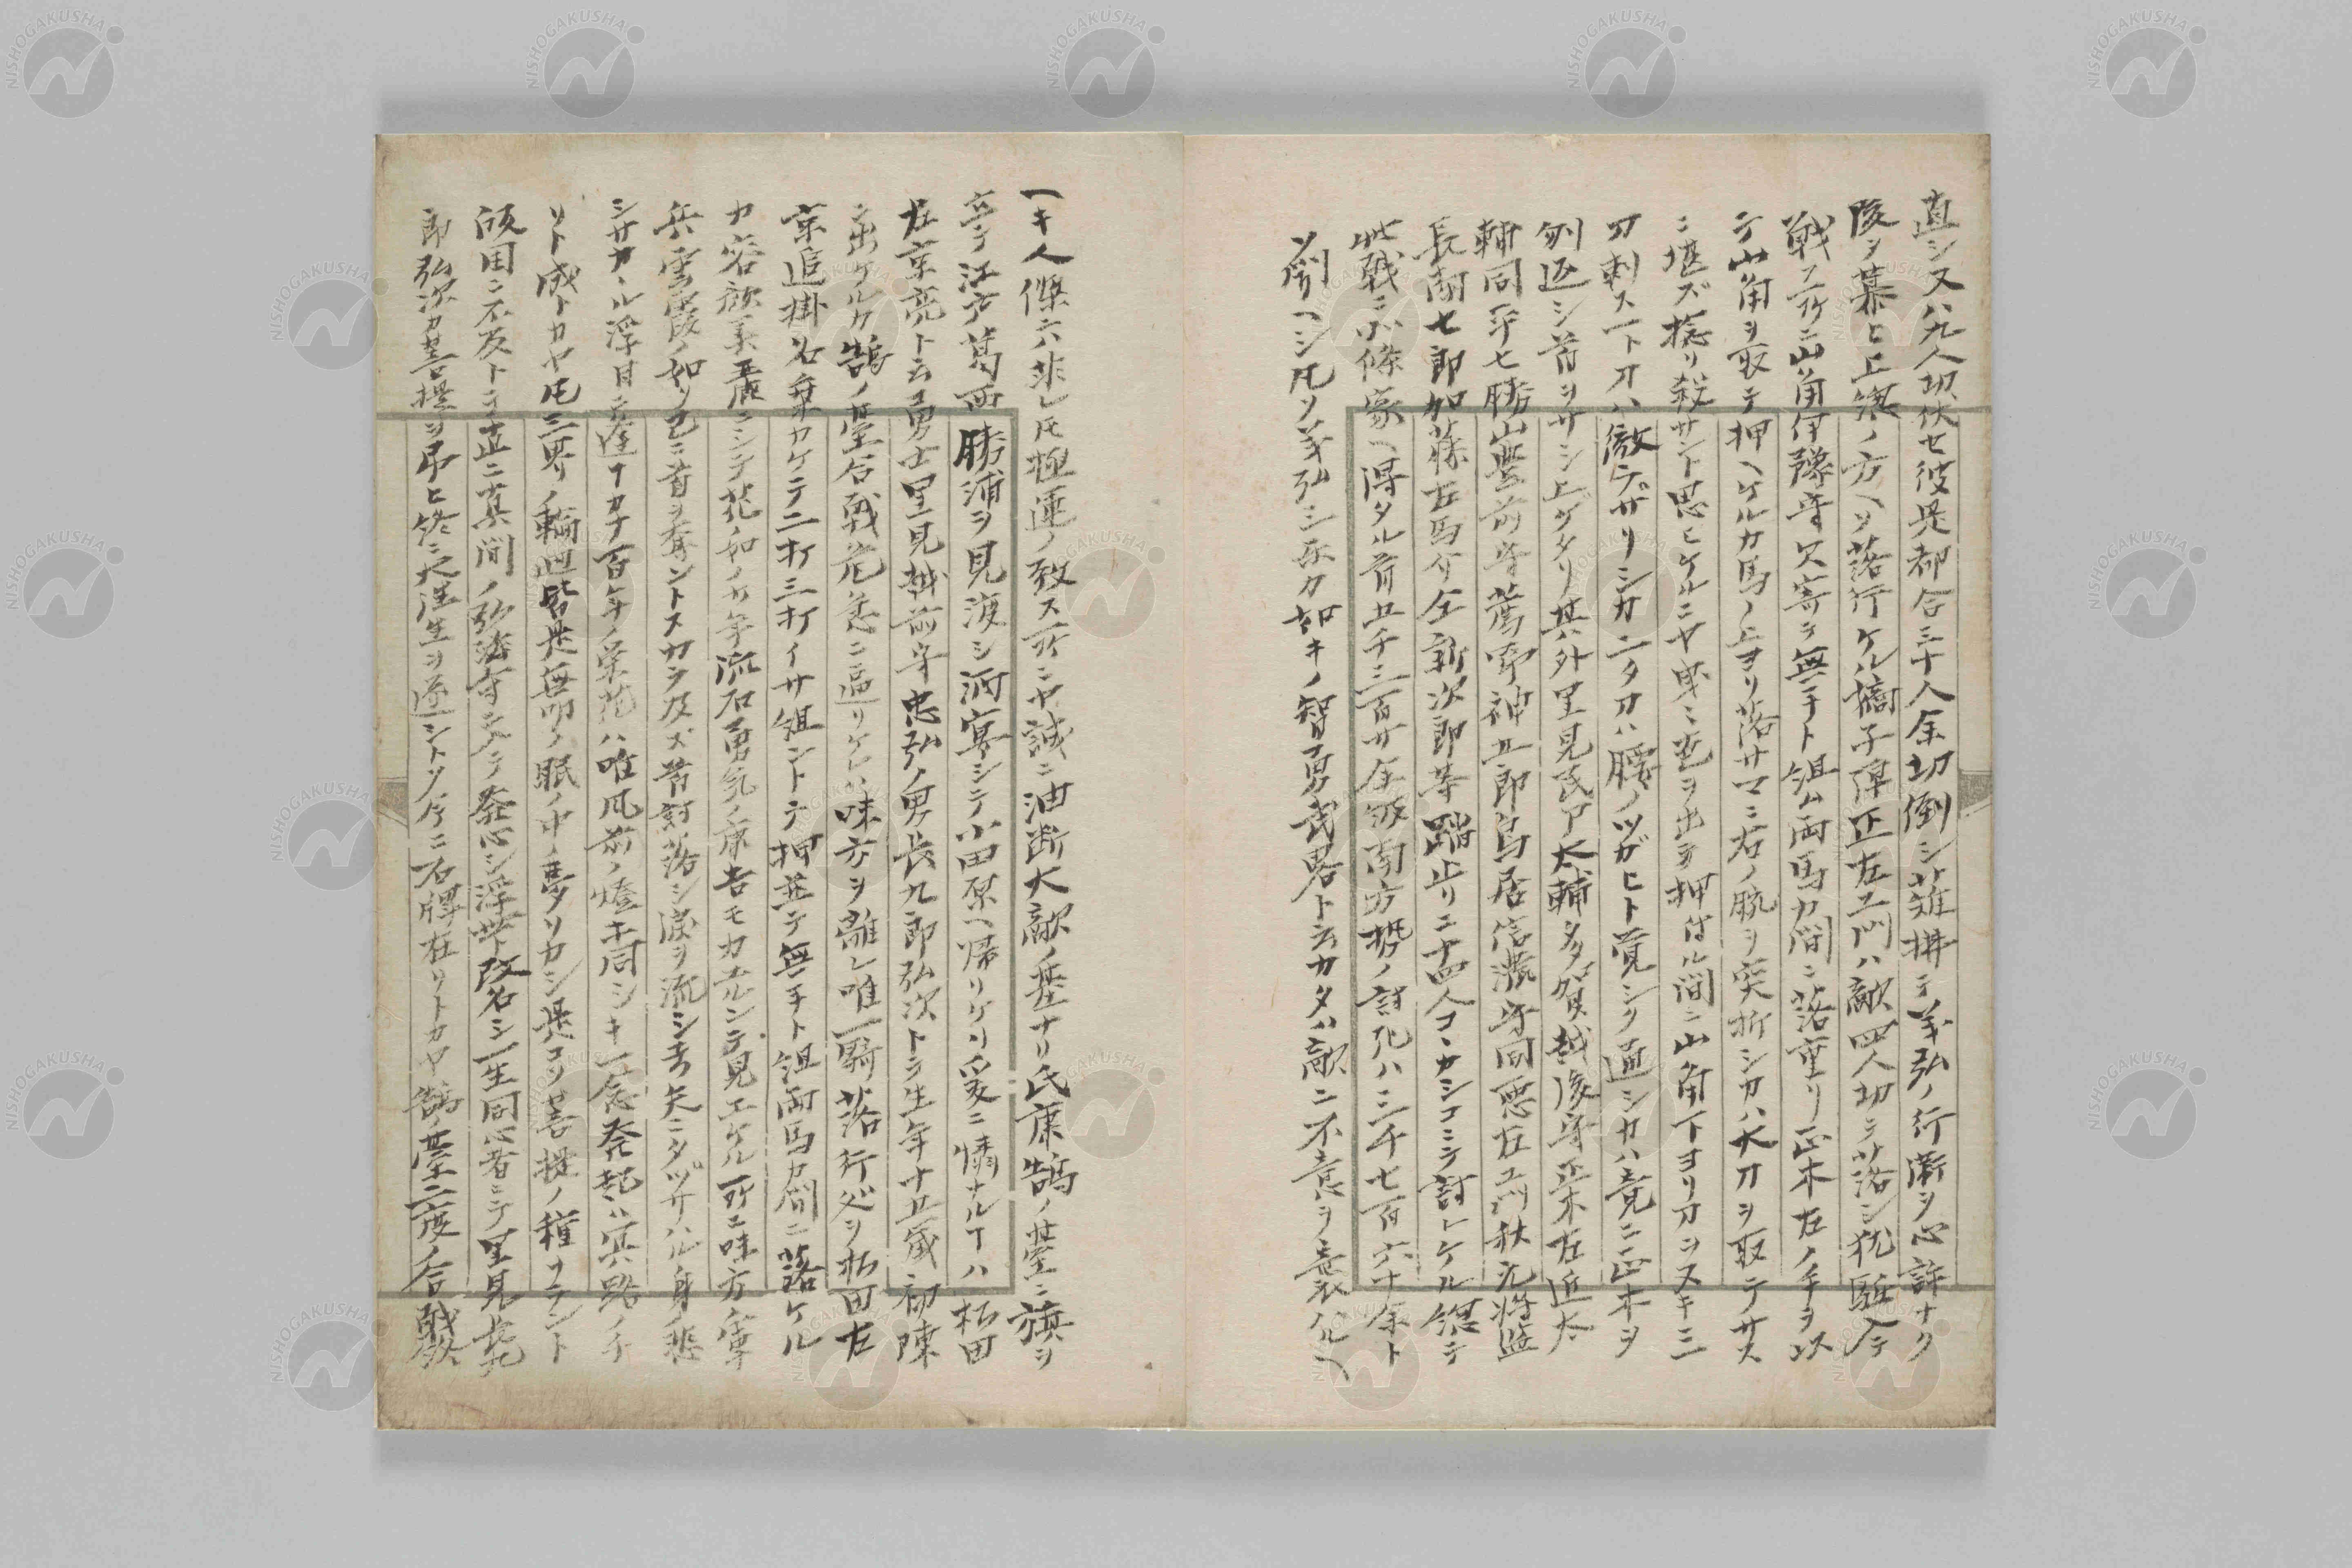 直シ又八九人切伏セ彼是都合三十人余切倒シ薙拂テ義弘ノ行衛ヲ心許ナク
陵ヲ慕ヒ上総ノ方ヘソ落行ケル摛子弾正左エ門ハ敵四人切テ落シ犹駈入テ
戦フ所ニ山角伊豫守欠寄テ無手ト組ム両馬カ間ニ落重リ正木左ノ手ヲ以
テ山角ヲ取テ押ヘケルカ馬ノ上ヨリ落サマニ右ノ腕ヲ突折シカハ大刀ヲ取テサス
ニ堪ズ捻リ殺サント思ヒケルニヤ曳ミ声ヲ出ヲ押付ル間ニ山角下ヨリ刀ヲヌキ三
刀刺ス一ト刀ハ徹ラザリシカ二タ刀ハ腰ノツガヒト覚シク通シカハ竟ニ正木ヲ
刎返シ首ヲサシ上ゲタリ其外里見民ア太輔多賀越後守正木左近太
輔同平七勝山豊前守薦野神五郎鳥居信濃守同悪左エ門秋元将監
長南七郎加藤左馬介仝新次郎等踏止リ二十四人コヽカシコニテ討レケル総テ
此戦ニ小條家ヘ得タル首五千三百廿仝級南方勢ノ討死ハ三千七百六十余ト
ソ聞ヘシ凡ソ義弘シ不カ如キノ智勇武畧ト云カタハ敵ニ不意ヲ襲ハルヘ
一キ人傑ニ六非レ氏極運ノ致ス所ニヤ誠ニ油断大敵ノ基ナリ氏康鵠ノ䑓ニ旗ヲ
立テ江戸葛西勝浦ヲ見渡シ洞寥シテ小田原ヘ帰リケリ爰ニ憐ナル𪜈ハ松田
左京亮ト云勇士里見越前守忠弘ノ男長九郎弘次トテ生年十五歳初陳
ニ出ケルカ鵠ノ䑓合戦危急ニ逼リケレハ味方ヲ離レ唯一騎落行処ヲ松田左
京追掛名乗カケテ二打三打イサ組ントテ押並テ無手ト組両馬カ間ニ落ケル
カ容㒵美麗ニシテ花ノ如ノ少年流石勇気ノ康吉モカルンテ見エケル所ニ味方ノ軍
兵雲霞ノ如ク已ニ首ヲ奪ントスカラ及ズ首討落シ涙ヲ流シ弓矢ニタヅサハル身ノ悲
シサカヽル浮目ニ逢𪜈カナ百年ノ栄花ハ唯風前ノ燈ニ同シキ一念発起ハ冥路ノチ
リト成トカヤ氏三界ノ輪廻皆是無明ノ眠ノ中ノ夢ソカシ是コソ菩提ノ種ナラント
帰国ニ不及トテ直ニ真間ノ弘法寺ニ入テ発心シ浮世ト改名シ一生同心者ニテ里見長九
郎弘次カ菩提ヲ弔ヒ終ニ大往生ヲ遂シトソ今ニ石牌在リトカヤ鵠ノ䑓二度ノ合戦